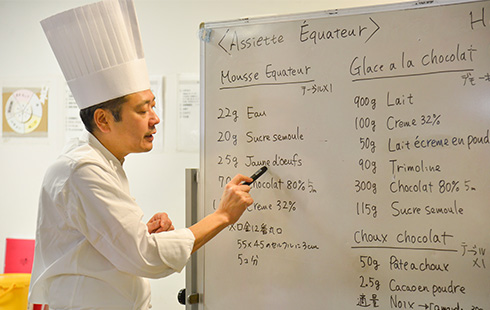 <Assiette Équateur>
H
Mousse Equateur
テーブル×1
22g Eau
20g Sucre semoule
25g Jaune d'oeufs
Chocolat 80%
Creme 32%
×口金12番丸口
5コ分
Glace a la chocolat
デモ
900g Lait
100g Creme 32%
50g Lait écreme en poud
90g Trimoline
300g Chocolat 80%
115g Sucre semoule
Choux chocolat
×1
50g Pâte a choux
2.5g Cacao en poudre
適量 Noix